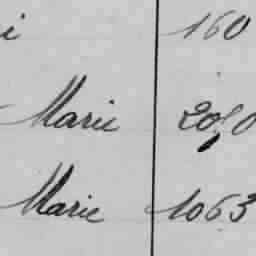 i 160
Marie 2050
Marie 1063